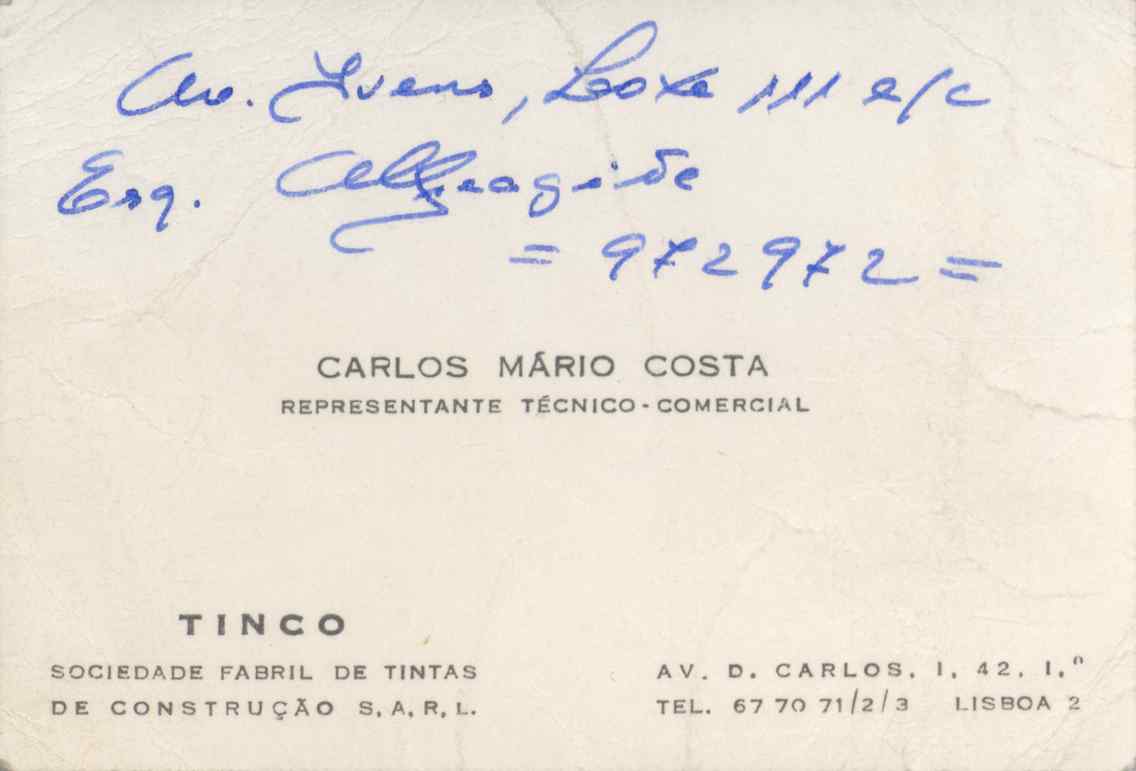 Av. Ivens, Loxe 111 r/c
Esq. Alfragide
= 972972 =
CARLOS MÁRIO COSTA
REPRESENTANTE TÉCNICO-COMERCIAL
TINCO
SOCIEDADE FABRIL DE TINTAS
DE CONSTRUÇÃO S.A.R.L.
AV. D. CARLOS, I, 42, 1.º
TEL. 67 70 71/2/3 LISBOA 2